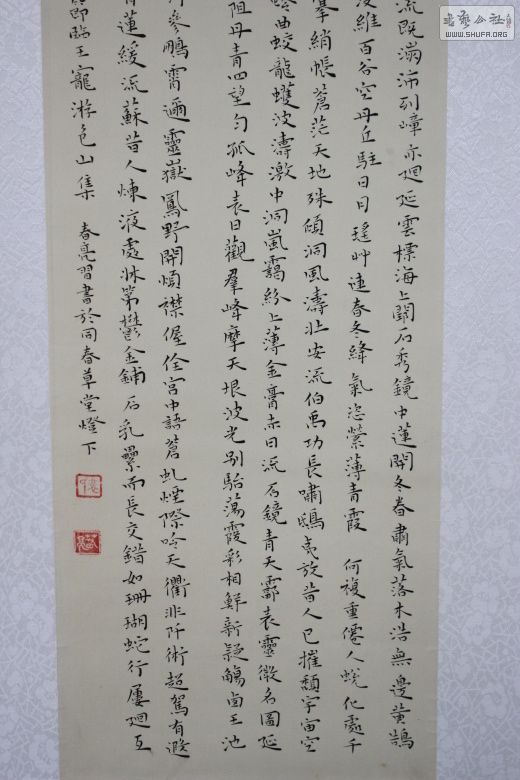 流既漰沛列嶂亦迴延雲標海上關石秀鏡中蓮開冬春肅氣落木浩無邊黃鵠
維百谷空丹丘駐日月瑤艸連春冬絳氣恣縈薄青霞 何複重僊人蛻化處千
綃帳蒼茫天地殊傾洞風濤壯安流伯禹功長嘯鴟夷放昔人已摧頹宇宙空
曲蛟龍蠖波濤激中洞嵐靄紛上薄金膏赤日流石鏡青天霩袁靈徵名圖延
阻丹青四望勻孤峰表日觀群峰摩天垠波光別駘蕩霞彩相鮮新疑觴崮王池
參鵬霄邇靈嶽鳳野開煩襟偓佺宮中語蒼虬煙際吟天衢非阡術超駕有遐
蓮緩流蘇昔人煉液處牀第鬱金鋪石乳壘而長交錯如珊瑚蛇行屢迴互
即臨王寵游包山集 春亮習書於同春草堂燈下
書藝公社
WWW.SHUFA.ORG